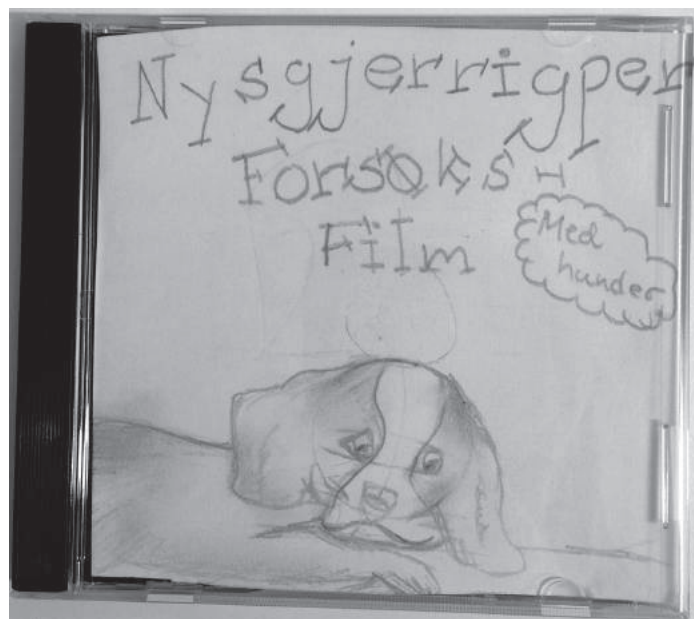 Nysgjerrigper
Forsøks-
Film
Med
hunder